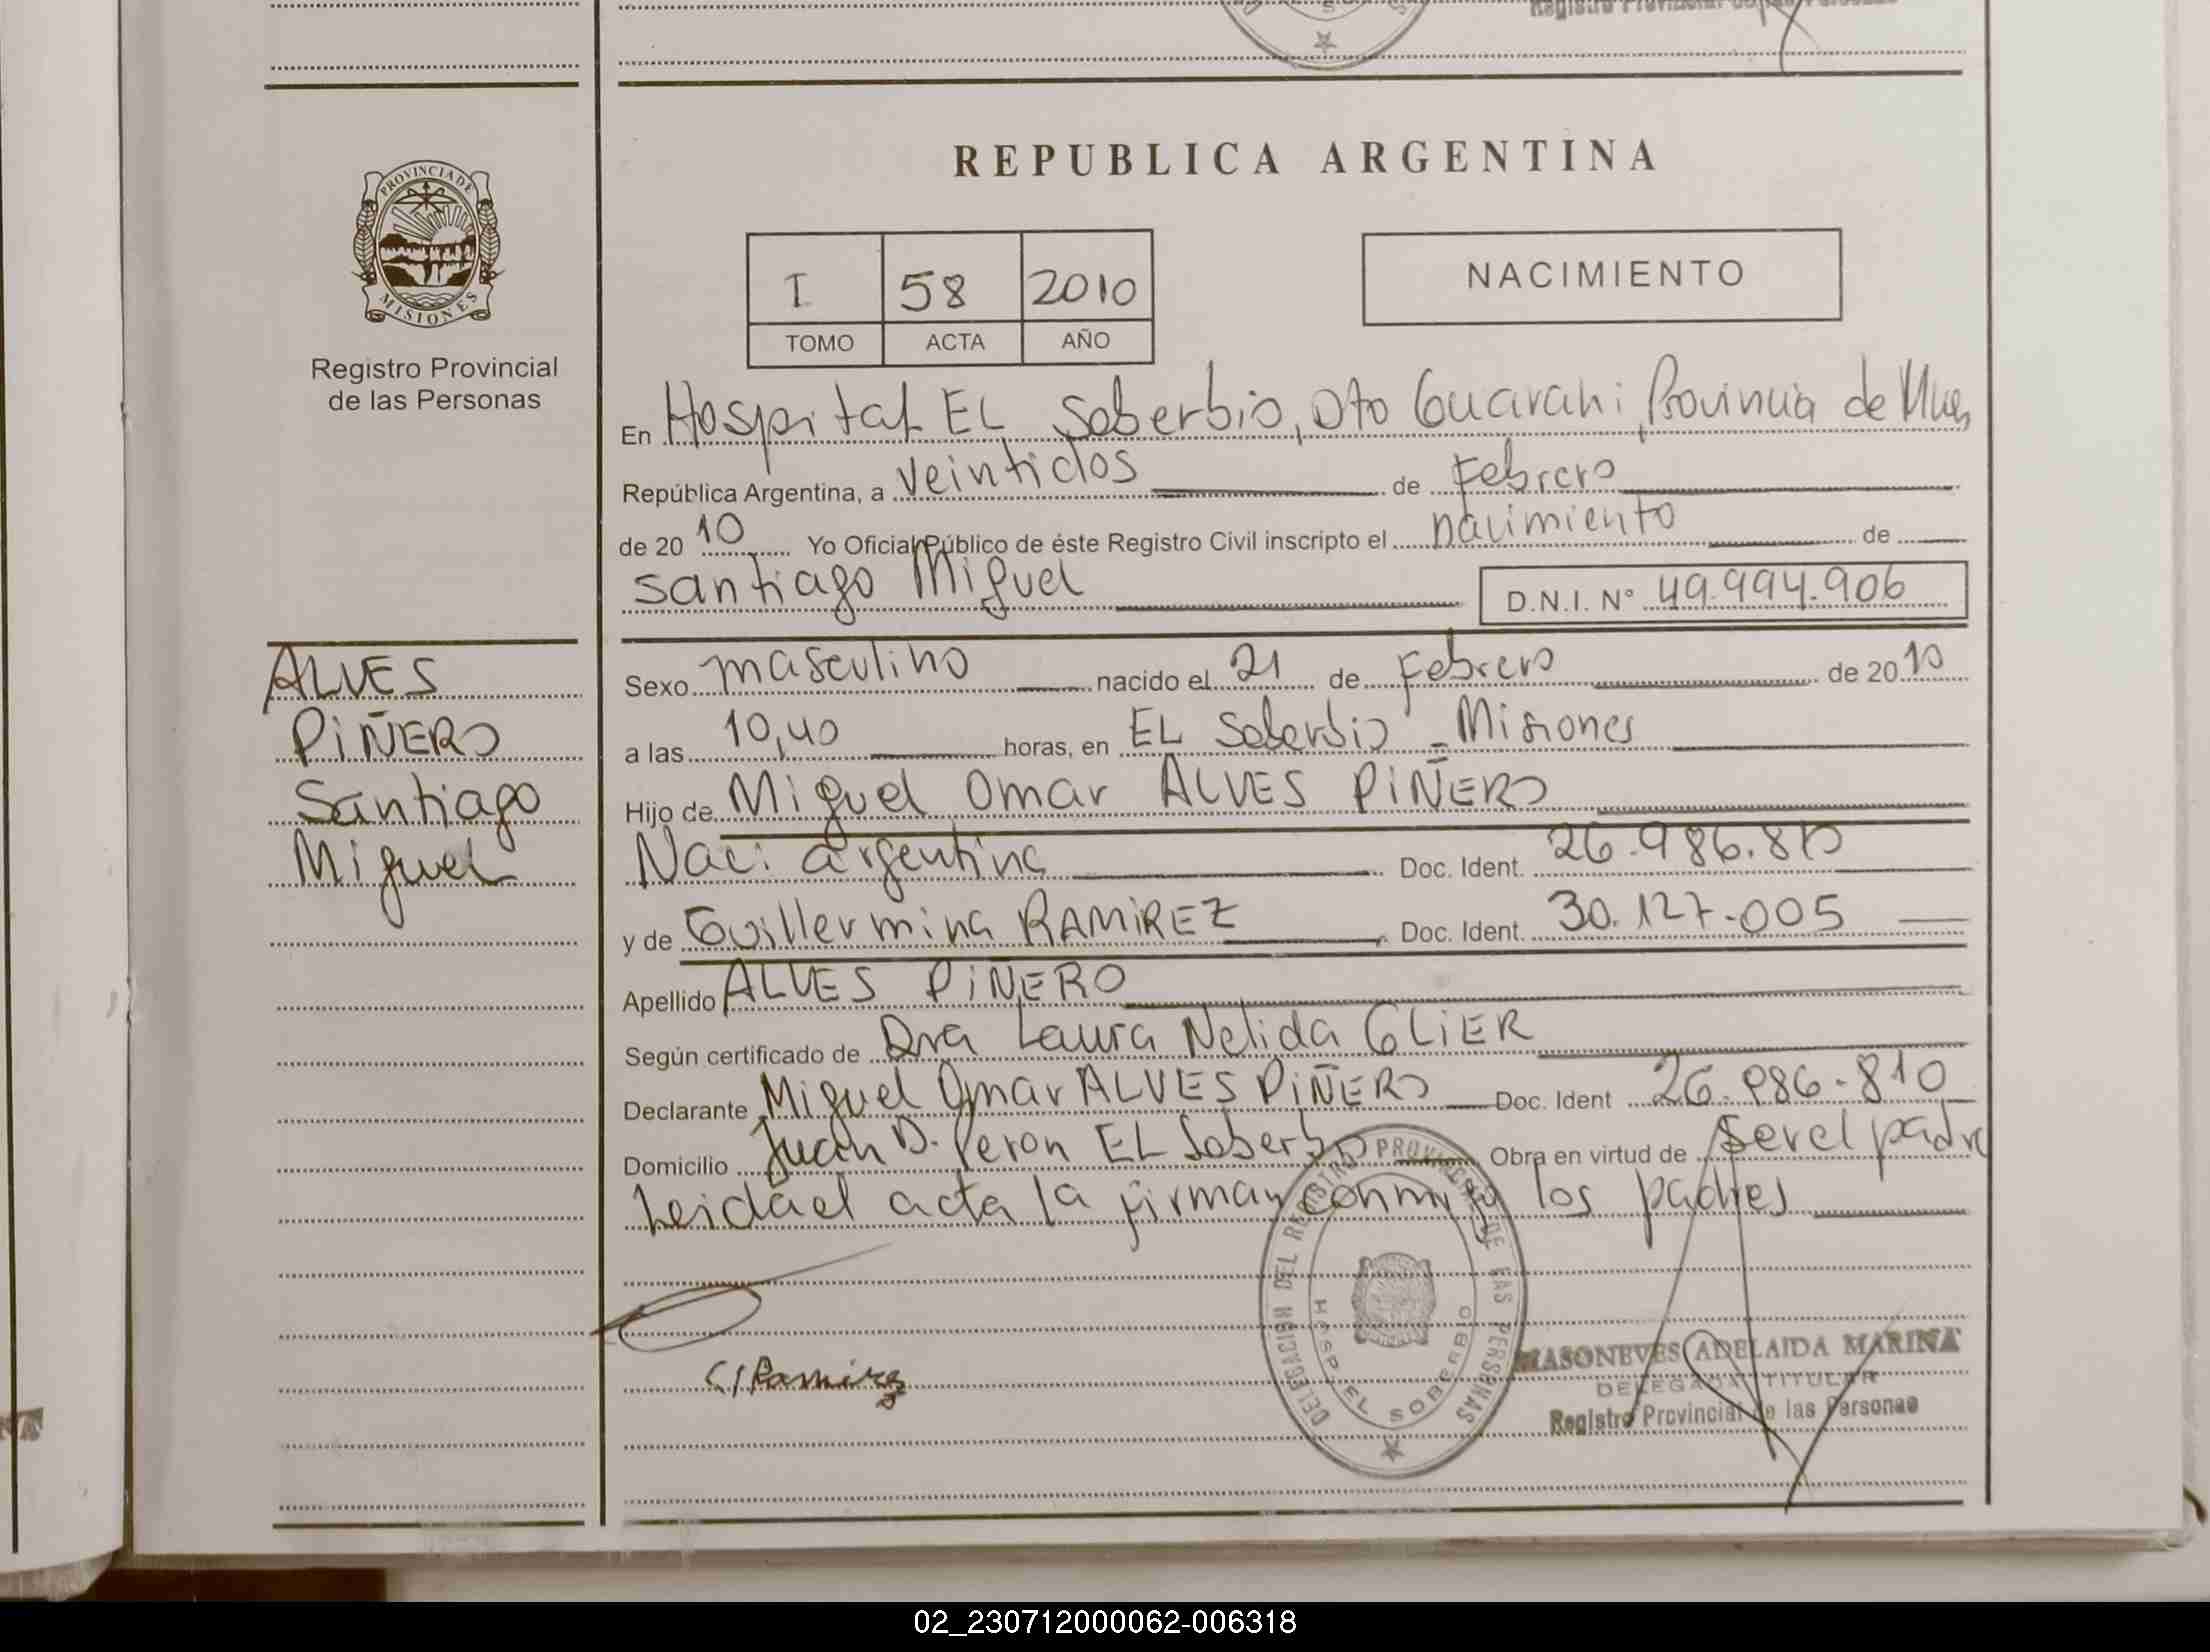 Registro Provincial de las Personas
PROVINCIA DE
MISIONES
Registro Provincial
de las Personas
ALVES
PIÑERO
Santiago
Miguel
REPUBLICA ARGENTINA
I 58 2010
TOMO ACTA AÑO
NACIMIENTO
En Hospital EL Soberbio, Dto Guarani, Provincia de Mnes
República Argentina, a veintidos de Febrero
de 2010 Yo Oficial Público de éste Registro Civil inscripto el nacimiento de
Santiago Miguel D.N.I. N° 49.994.906
Sexo masculino nacido el 21 de Febrero de 2010
a las 10,40 horas, en EL Soberbio - Misiones
Hijo de Miguel Omar ALVES PIÑERO
Nac: argentina Doc. Ident. 26.986.810
y de Guillermina RAMIREZ Doc. Ident. 30.127.005
Apellido ALVES PIÑERO
Según certificado de Dra Laura Nelida GLIER
Declarante Miguel Omar ALVES PIÑERO Doc. Ident 26.986.810
Domicilio Juan D. Peron EL Soberbio Obra en virtud de ser el padre
Leida el acta la firman conmigo los padres
DELEGACION DEL REGISTRO PROVINCIAL DE LAS PERSONAS
HOSP. EL SOBERBIO
G Ramirez
MASONEVES ADELAIDA MARINA
DELEGADA TITULAR
Registro Provincial de las Personas
02_230712000062-006318